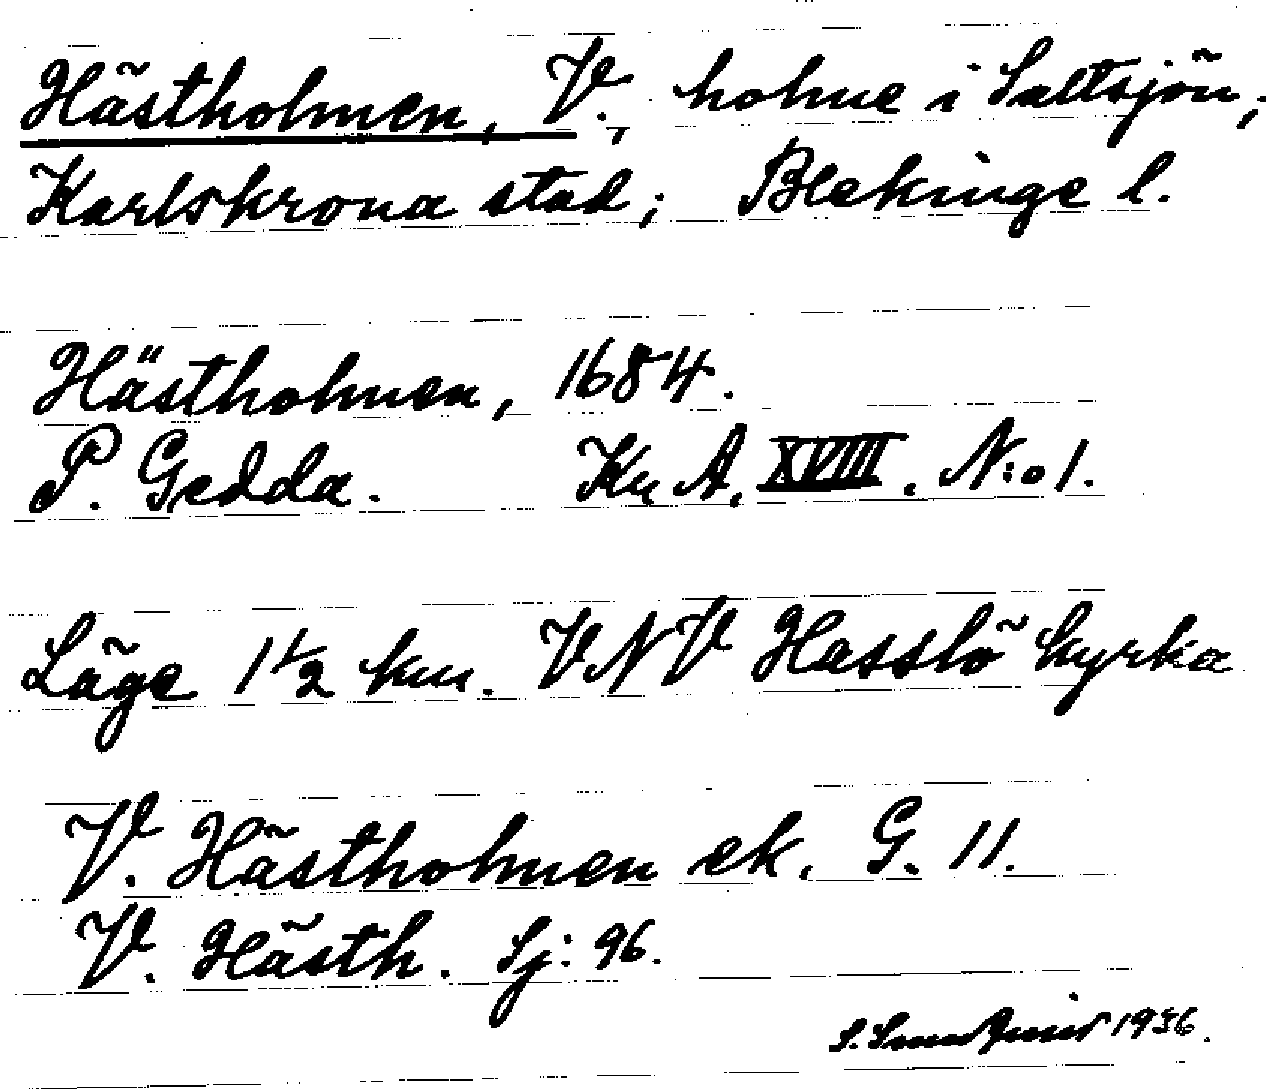 Hästholmen, V., holme i Saltsjön;
Karlskrona stad; Blekinge l.
Hästholmen, 1684.
P. Gedda. Ku A. XVIII. N:o 1.
Läge 1 1/2 km. VNV Hasslö kyrka
V. Hästholmen ek. G. 11.
V. Hästh. Sj: 96.
S. 1936.